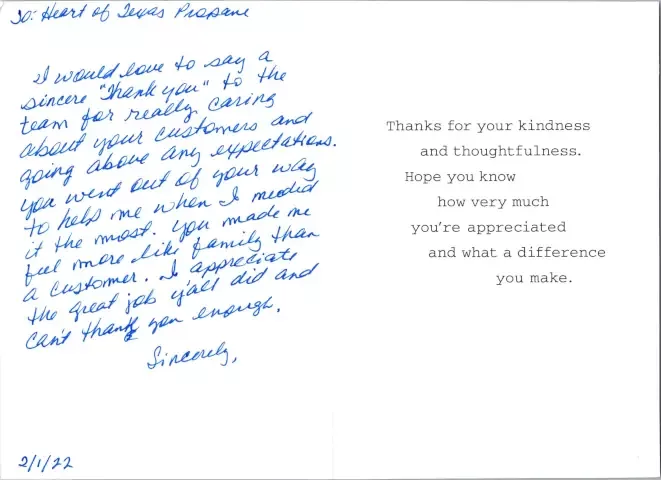 To: Heart of Texas Propane
I would love to say a
sincere "Thank you" to the
team for really caring
about your customers and
going above any expectations.
you went out of your way
to help me when I needed
it the most. you made me
feel more like family than
a customer. I appreciate
the great job y'all did and
can't thank you enough.
Sincerely,
2/1/22
Thanks for your kindness
and thoughtfulness.
Hope you know
how very much
you're appreciated
and what a difference
you make.